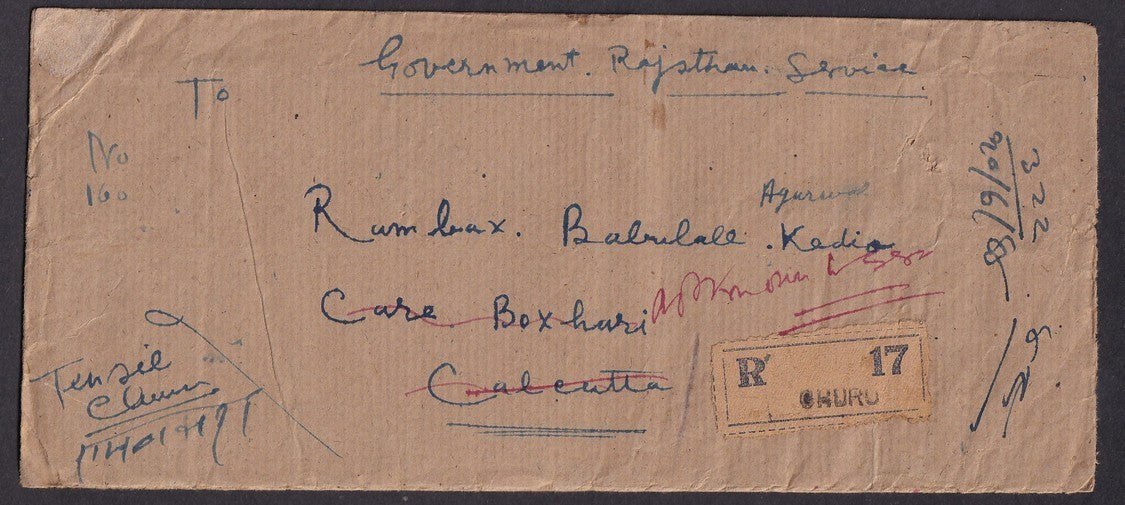 Government. Rajsthan. Service
To
No
160
Agarwal
Rambax. Babulall. Kadia
Care Boxhari
Calcutta
R 17
CHURU
Tehsil
Churu
322